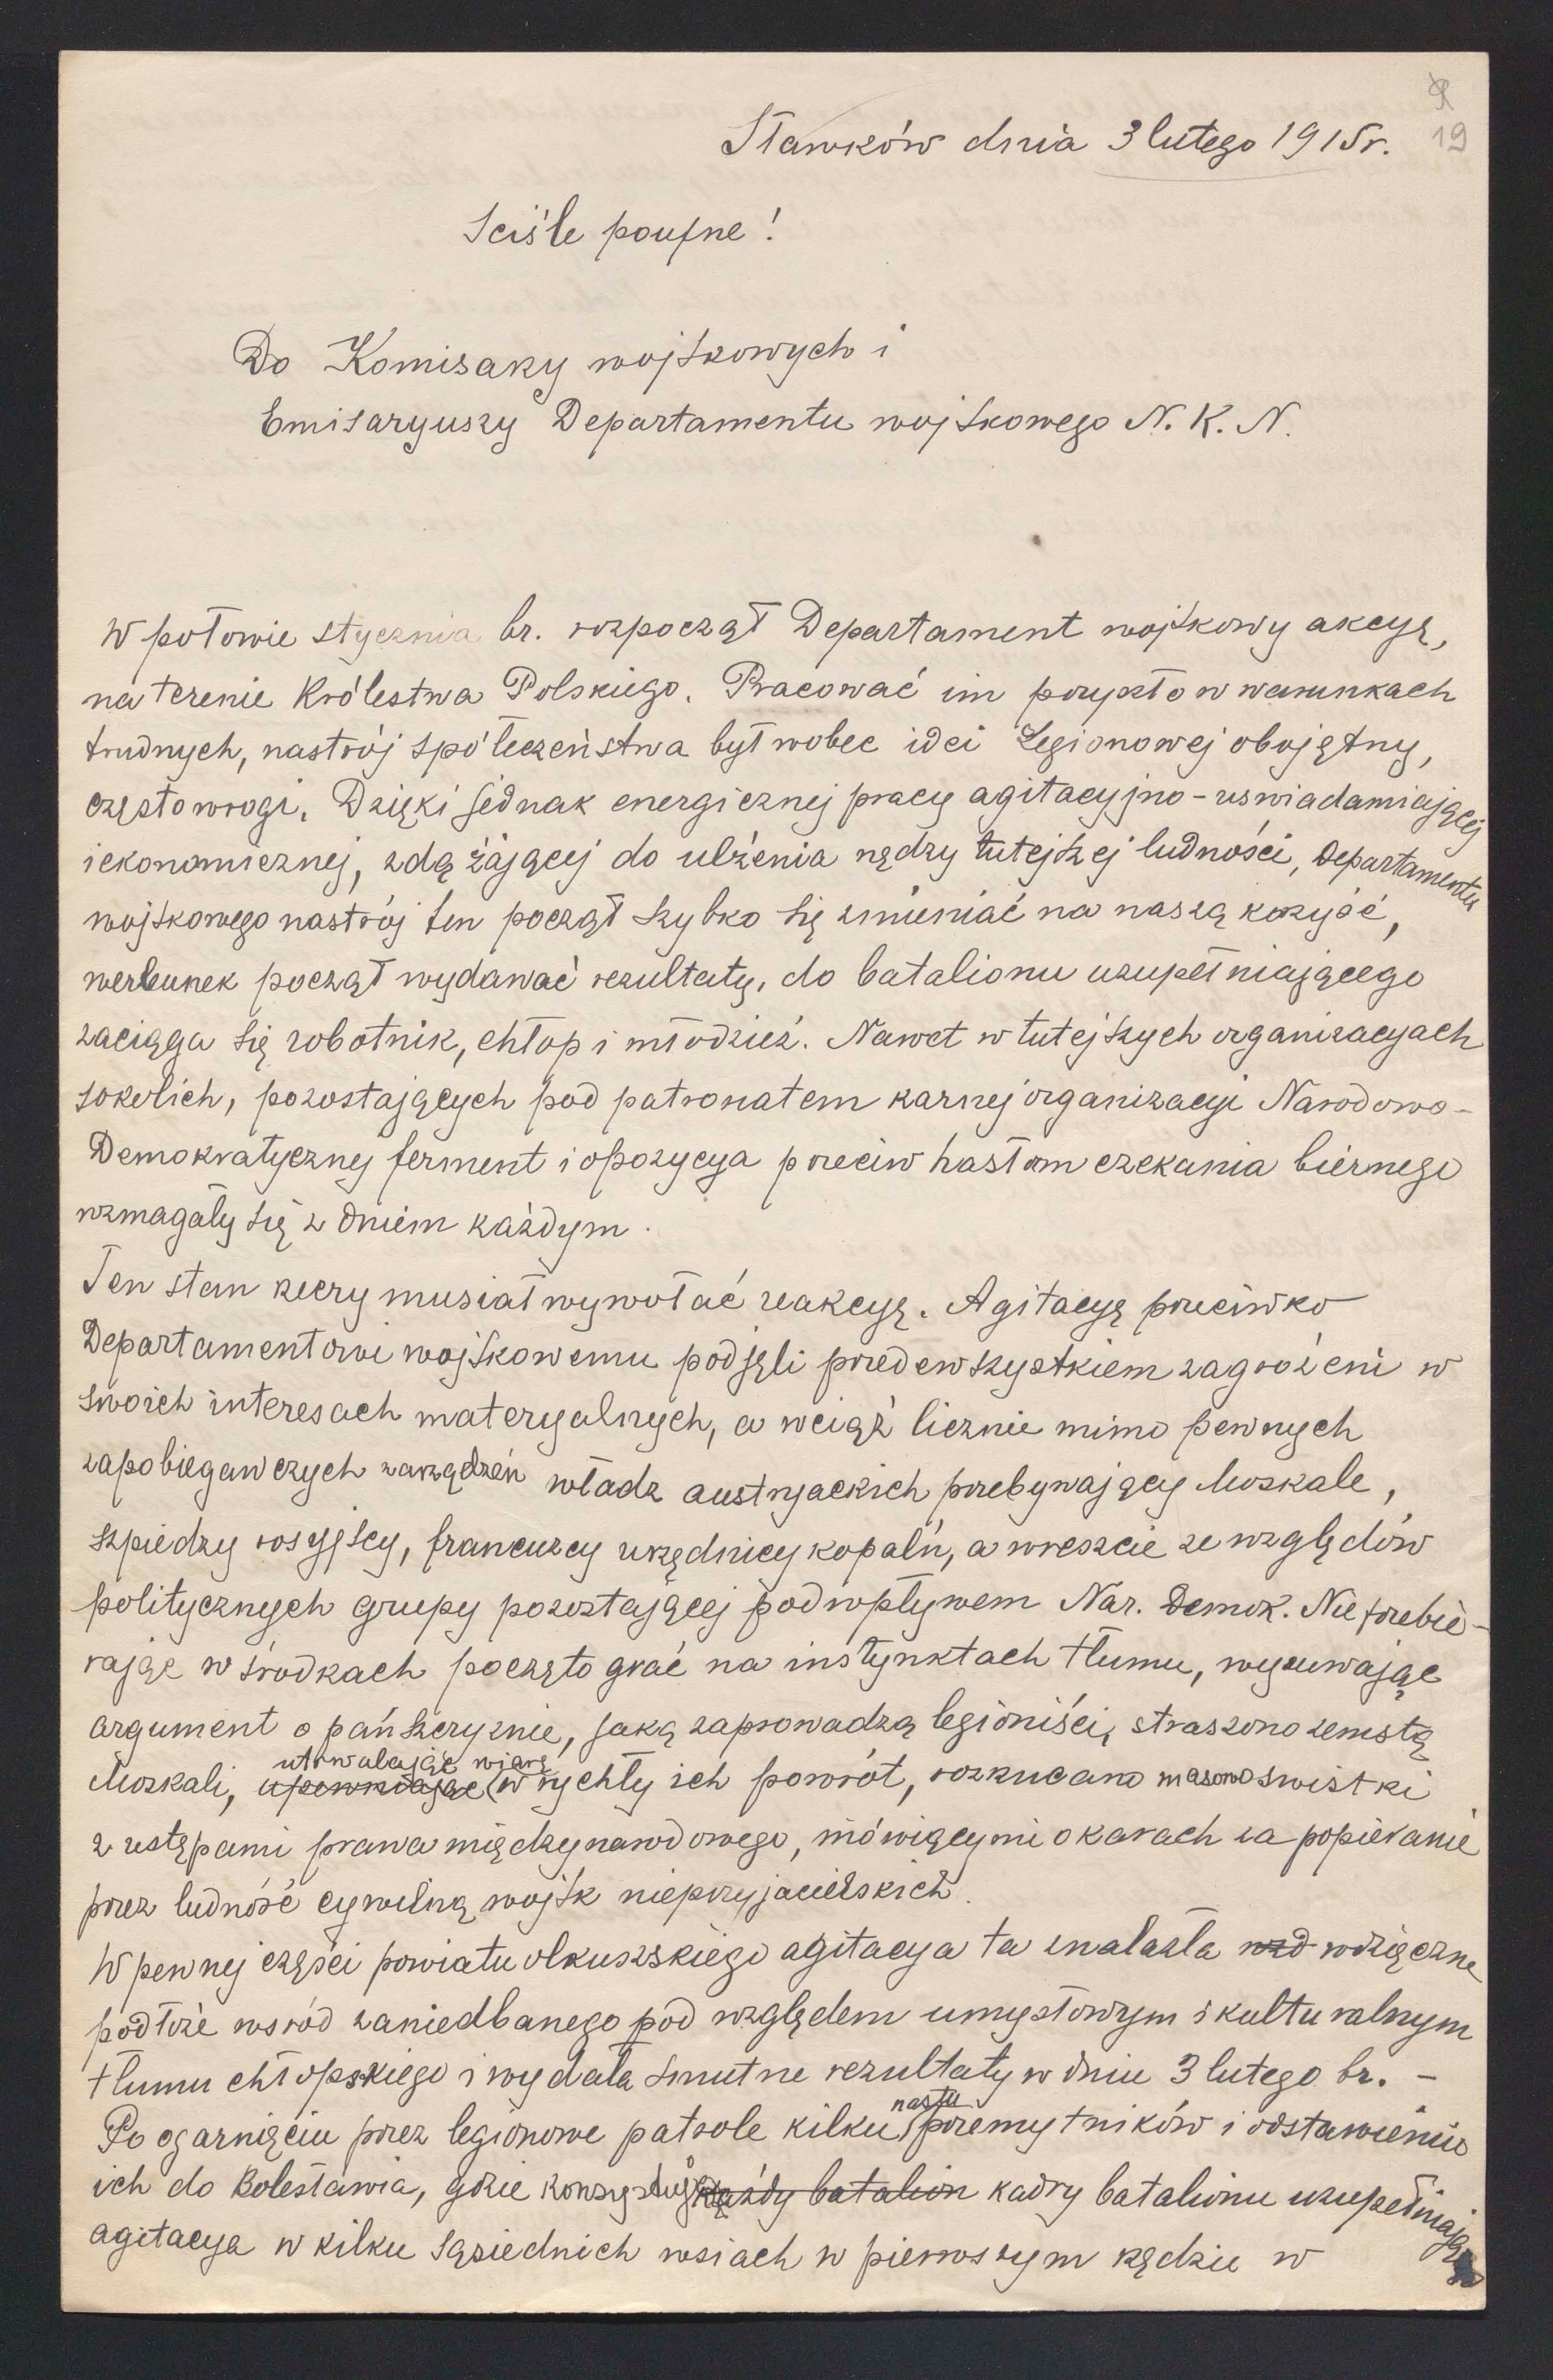 19
Sławków dnia 3 lutego 1915r.
Sciśle poufne!
Do Komisarzy wojskowych i
Emisaryuszy Departamentu wojskowego N. K. N.
W połowie stycznia br. rozpoczął Departament wojskowy akcyę,
na terenie Królestwa Polskiego. Pracować im przyszło w warunkach
trudnych, nastrój społeczeństwa był wobec idei Legionowej obojętny,
często wrogi. Dzięki jednak energicznej pracy agitacyjno-uswiadamiającej
i ekonomicznej, zdążającej do ulżenia nędzy tutejszej ludności, Departamentu
wojskowego nastrój ten począł szybko się zmieniać na naszą korzyść,
werbunek począł wydawać rezultaty, do batalionu uzupełniającego
zaciąga się robotnik, chłop i młodzież. Nawet w tutejszych organizacyach
sokolich, pozostających pod patronatem karnej organizacyi Narodowo-
Demokratycznej ferment i opozycya przeciw hasłom czekania biernego
wzmagały się z dniem każdym.
Ten stan rzeczy musiał wywołać reakcyę. Agitacyę przeciwko
Departamentowi wojskowemu podjęli przedewszystkiem zagrożeni w
swoich interesach materyalnych, a wciąż licznie mimo pewnych
zapobiegawczych zarządzeń władz austryackich przebywający Moskale,
szpiedzy rosyjscy, francuzcy urzędnicy kopalń, a wreszcie ze względów
politycznych grupy pozostającej pod wpływem Nar. Demok. Nie przebie-
rając w środkach poczęto grać na instynktach tłumu, wysuwając
argument o pańszczyznie, jaką zaprowadzą legioniści, straszono zemstą
utrwalając wiarę
Moskali, upewniając w rychły ich powrót, rozrzucano masowo swistki
z ustępami prawa międzynarodowego, mówiącymi o karach za popieranie
przez ludność cywilną wojsk nieprzyjacielskich.
W pewnej części powiatu olkuszskiego agitacya ta znalazła wzd wdzięczne
podłoże wsród zaniedbanego pod względem umysłowym i kulturalnym
tłumu chłopskiego i wydała smutne rezultaty w dniu 3 lutego br. -
nastu
Po ogarnięciu przez legionowe patrole kilku przemytników i odstawieniu
ich do Bolesławia, gdzie konsystują każdy batalion kadry batalionu uzupełniają
agitacya w kilku sąsiednich wsiach w pierwszym rzędzie w